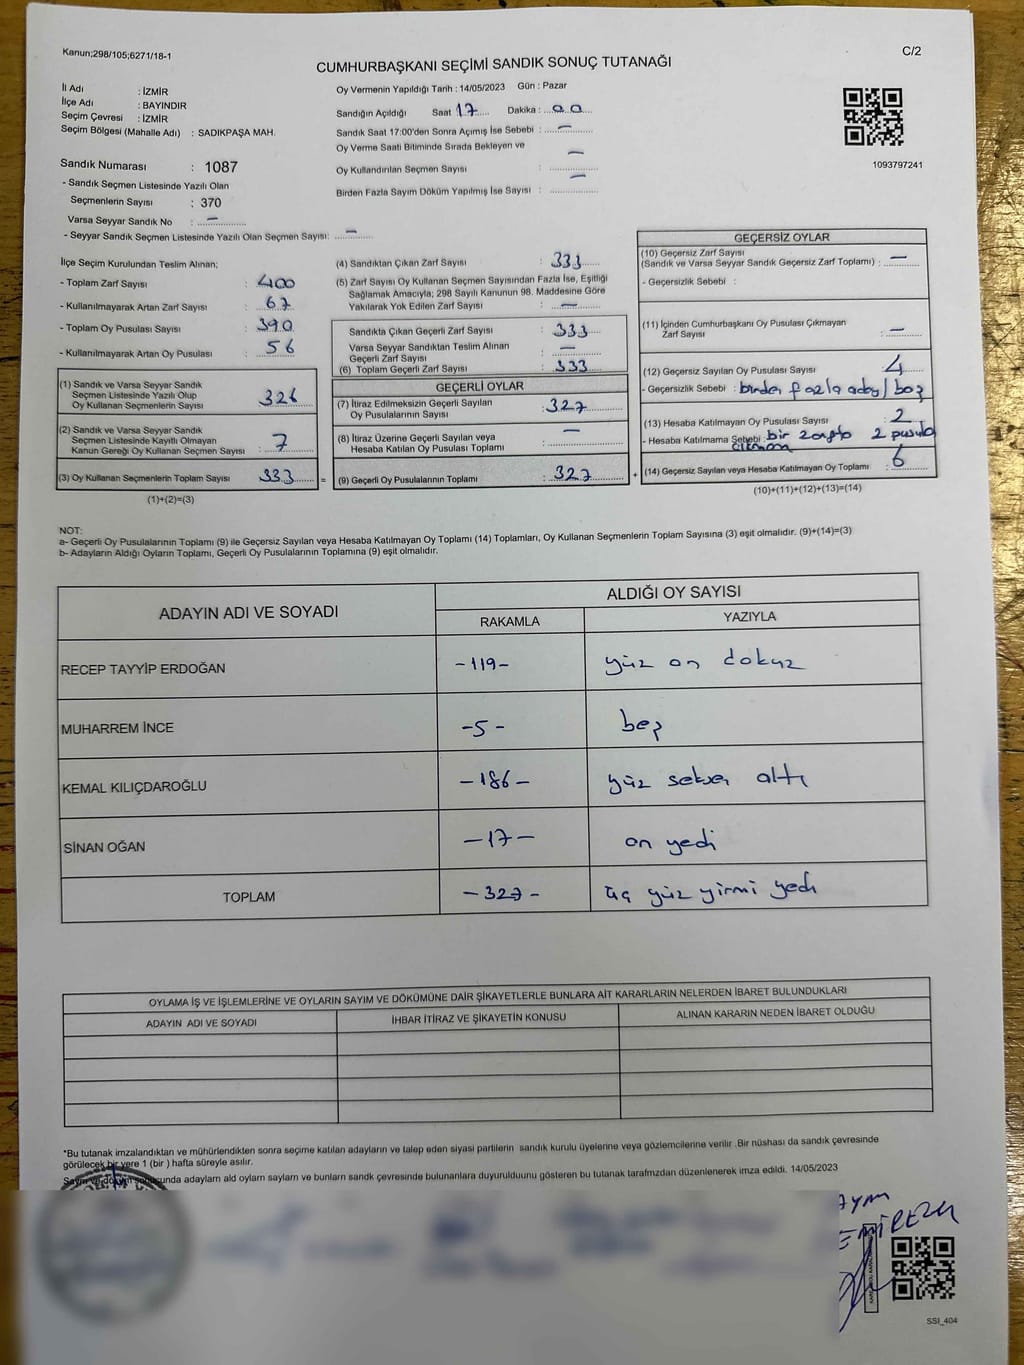 Kanun;298/105;6271/18-1
C/2
CUMHURBAŞKANI SEÇİMİ SANDIK SONUÇ TUTANAĞI
İl Adı : İZMİR
İlçe Adı : BAYINDIR
Seçim Çevresi : İZMİR
Seçim Bölgesi (Mahalle Adı) : SADIKPAŞA MAH.
Oy Vermenin Yapıldığı Tarih : 14/05/2023 Gün : Pazar
Sandığın Açıldığı Saat 17 Dakika : 00
Sandık Saat 17:00'den Sonra Açımış İse Sebebi : —
Oy Verme Saati Bitiminde Sırada Bekleyen ve
Oy Kullandırılan Seçmen Sayısı : —
Birden Fazla Sayım Döküm Yapılmış İse Sayısı : —
1093797241
Sandık Numarası : 1087
- Sandık Seçmen Listesinde Yazılı Olan
Seçmenlerin Sayısı : 370
Varsa Seyyar Sandık No : —
- Seyyar Sandık Seçmen Listesinde Yazılı Olan Seçmen Sayısı: —
İlçe Seçim Kurulundan Teslim Alınan;
- Toplam Zarf Sayısı : 400
- Kullanılmayarak Artan Zarf Sayısı : 67
- Toplam Oy Pusulası Sayısı : 390
- Kullanılmayarak Artan Oy Pusulası : 56
(1) Sandık ve Varsa Seyyar Sandık
Seçmen Listesinde Yazılı Olup
Oy Kullanan Seçmenlerin Sayısı : 326
(2) Sandık ve Varsa Seyyar Sandık
Seçmen Listesinde Kayıtlı Olmayan
Kanun Gereği Oy Kullanan Seçmen Sayısı : 7
(3) Oy Kullanan Seçmenlerin Toplam Sayısı : 333 =
(1)+(2)=(3)
(4) Sandıktan Çıkan Zarf Sayısı : 333
(5) Zarf Sayısı Oy Kullanan Seçmen Sayısından Fazla İse, Eşitliği
Sağlamak Amacıyla; 298 Sayılı Kanunun 98. Maddesine Göre
Yakılarak Yok Edilen Zarf Sayısı : —
Sandıkta Çıkan Geçerli Zarf Sayısı : 333
Varsa Seyyar Sandıktan Teslim Alınan
Geçerli Zarf Sayısı : —
(6) Toplam Geçerli Zarf Sayısı : 333
GEÇERLİ OYLAR
(7) İtiraz Edilmeksizin Geçerli Sayılan
Oy Pusulalarının Sayısı : 327
(8) İtiraz Üzerine Geçerli Sayılan veya
Hesaba Katılan Oy Pusulası Toplamı : —
(9) Geçerli Oy Pusulalarının Toplamı : 327 +
GEÇERSİZ OYLAR
(10) Geçersiz Zarf Sayısı
(Sandık ve Varsa Seyyar Sandık Geçersiz Zarf Toplamı) : —
- Geçersizlik Sebebi :
(11) İçinden Cumhurbaşkanı Oy Pusulası Çıkmayan
Zarf Sayısı : —
(12) Geçersiz Sayılan Oy Pusulası Sayısı : 4
- Geçersizlik Sebebi : birden fazla aday/boş
(13) Hesaba Katılmayan Oy Pusulası Sayısı : 2
- Hesaba Katılmama Sebebi : bir zarfta 2 pusula
(14) Geçersiz Sayılan veya Hesaba Katılmayan Oy Toplamı : 6
(10)+(11)+(12)+(13)=(14)
NOT:
a- Geçerli Oy Pusulalarının Toplamı (9) ile Geçersiz Sayılan veya Hesaba Katılmayan Oy Toplamı (14) Toplamları, Oy Kullanan Seçmenlerin Toplam Sayısına (3) eşit olmalıdır. (9)+(14)=(3)
b- Adayların Aldığı Oyların Toplamı, Geçerli Oy Pusulalarının Toplamına (9) eşit olmalıdır.
ADAYIN ADI VE SOYADI
ALDIĞI OY SAYISI
RAKAMLA YAZIYLA
RECEP TAYYİP ERDOĞAN -119- yüz on dokuz
MUHARREM İNCE -5- beş
KEMAL KILIÇDAROĞLU -186- yüz seksen altı
SİNAN OĞAN -17- on yedi
TOPLAM -327- üç yüz yirmi yedi
OYLAMA İŞ VE İŞLEMLERİNE VE OYLARIN SAYIM VE DÖKÜMÜNE DAİR ŞİKAYETLERLE BUNLARA AİT KARARLARIN NELERDEN İBARET BULUNDUKLARI
ADAYIN ADI VE SOYADI İHBAR İTİRAZ VE ŞİKAYETİN KONUSU ALINAN KARARIN NEDEN İBARET OLDUĞU
*Bu tutanak imzalandıktan ve mühürlendikten sonra seçime katılan adayların ve talep eden siyasi partilerin sandık kurulu üyelerine veya gözlemcilerine verilir .Bir nüshası da sandık çevresinde
görülecek bir yere 1 (bir ) hafta süreyle asılır.
Sayım ve döküm sonucunda adayların ald oyların sayların ve bunların sandk çevresinde bulunanlara duyurulduunu gösteren bu tutanak tarafmzdan düzenlenerek imza edildi. 14/05/2023
SSI_404